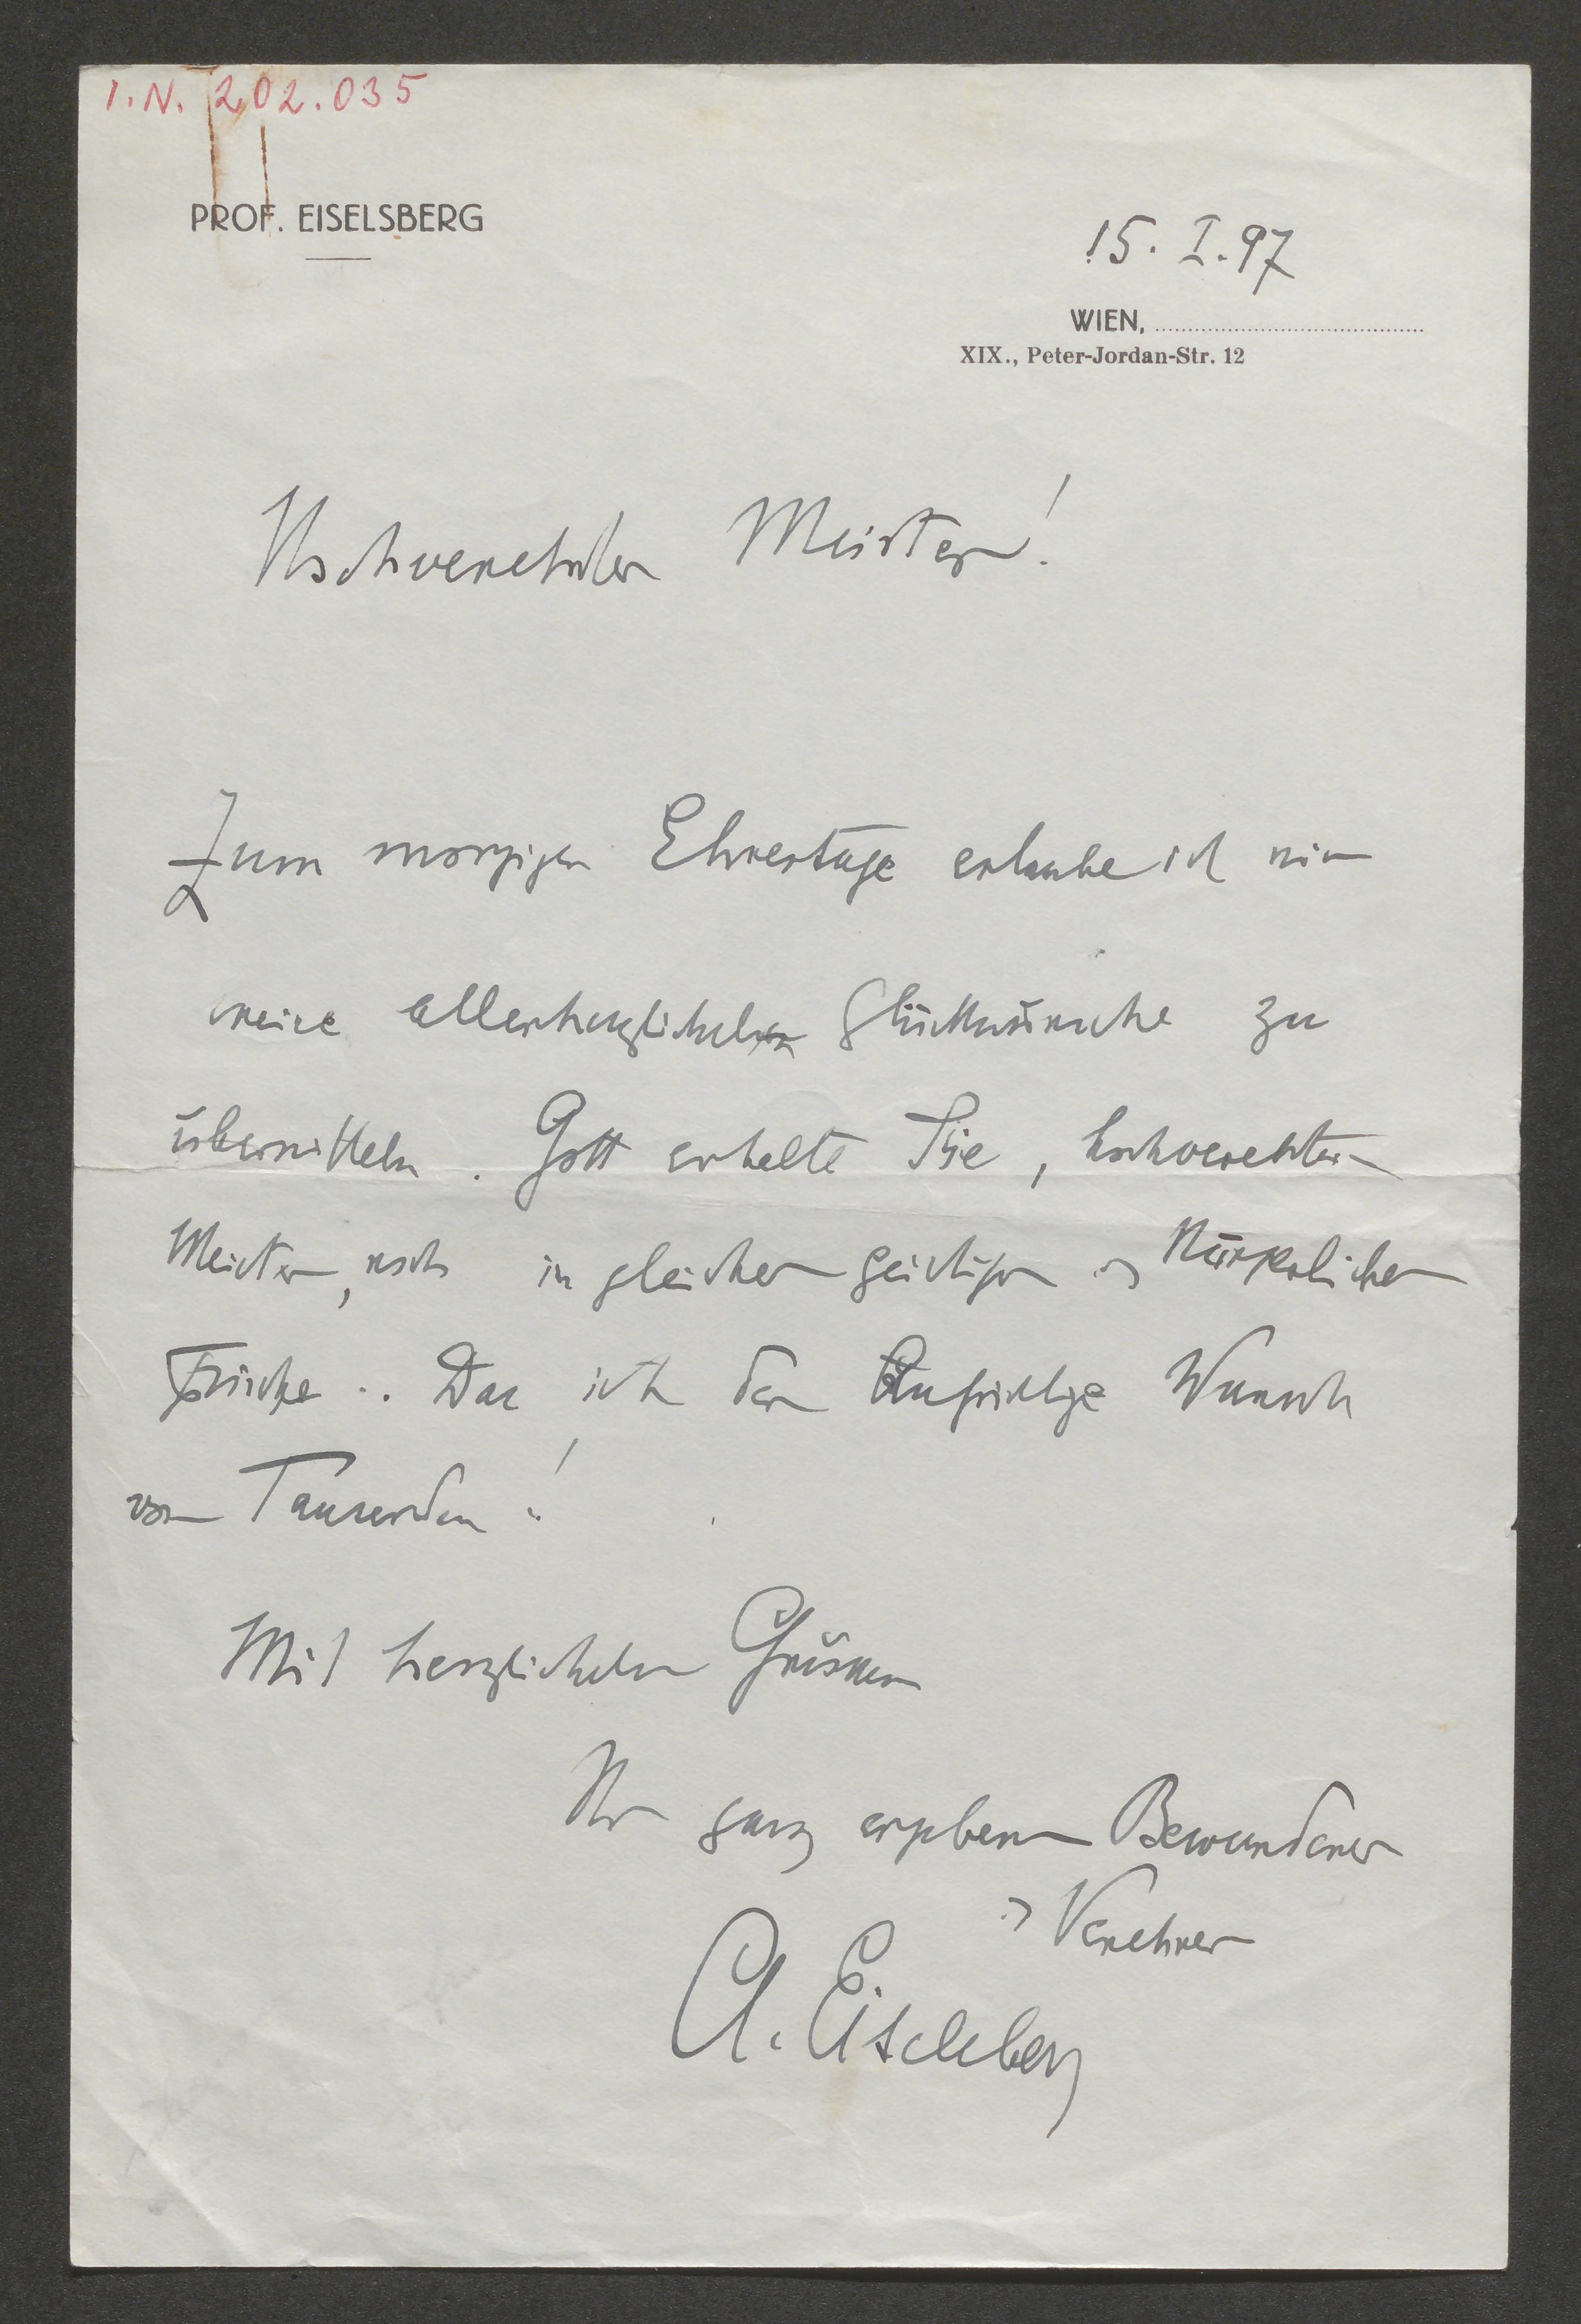 I.N. 202.035
PROF. EISELSBERG
15. I. 97
WIEN,
XIX., Peter-Jordan-Str. 12
Hochverehrter Meister!
Zum morgigen Ehrentage erlaube ich mir
meine allerherzlichsten Glückwünsche zu
übermitteln. Gott erhalte Sie, hochverehrter
Meister, noch in gleicher geistiger u körperlicher
Frische.. Das ist der Aufrichtige Wunsch
von Tausenden!
Mit herzlichsten Grüssen
Ihr ganz ergebener Bewunderer
u Verehrer
A. Eiselsberg